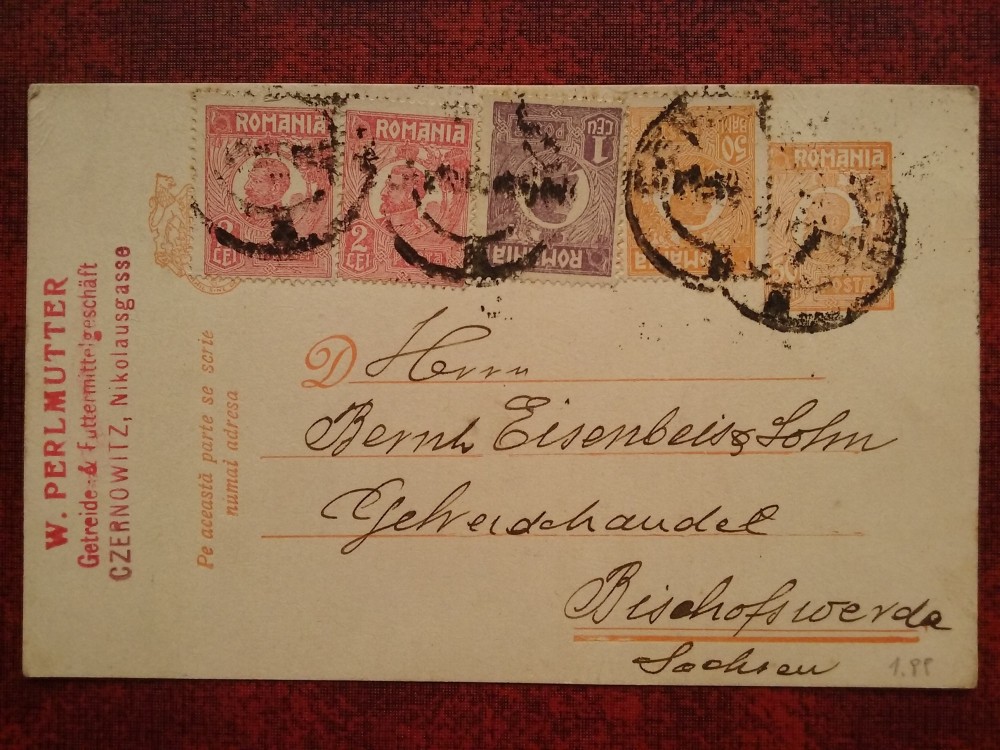 ROMANIA
2
LEI
ROMANIA
2
LEI
1
LEU
ROMANIA
50
BANI
ROMANIA
ROMANIA
50
POSTA
W. PERLMUTTER
Getreide- & Futtermittelgeschäft
CZERNOWITZ, Nikolausgasse
Pe această parte se scrie
numai adresa
D Herrn
Bernh Eisenbeis & Sohn
Getreidehandel
Bischofswerda
Sachsen